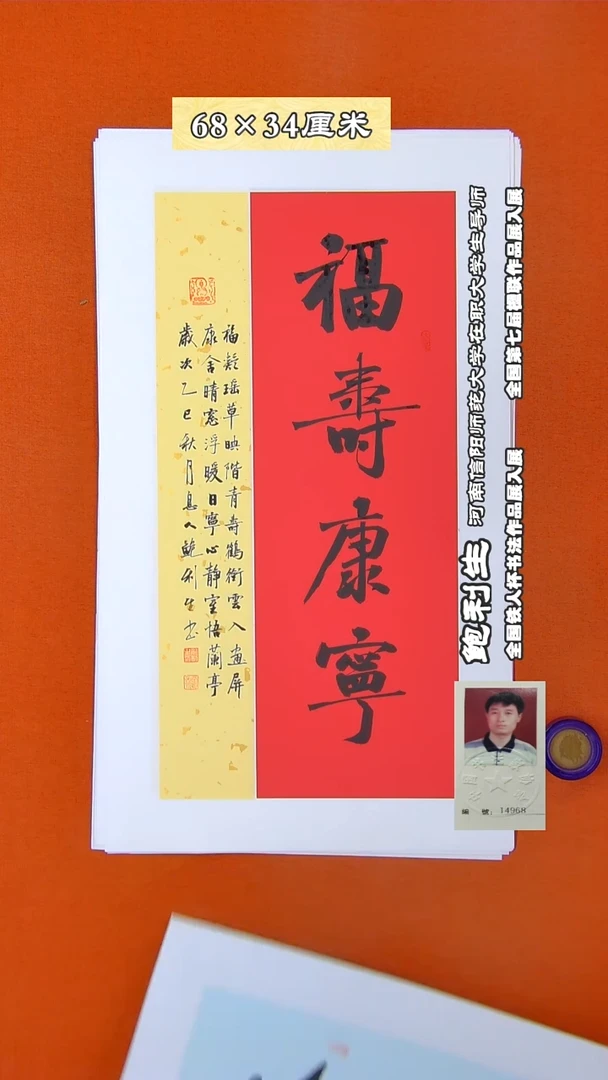 68×34厘米
福壽康寧
福凝瑶草映階青壽鶴銜雲入畫屏
康舍晴窓浮暖日寧心静室悟蘭亭
歲次乙巳秋月
鮑利生書
鲍利生 河南信阳师范大学在职大学生导师
全国铁人杯书法作品展入展 全国第七届楹联作品展入展
編 號：14968